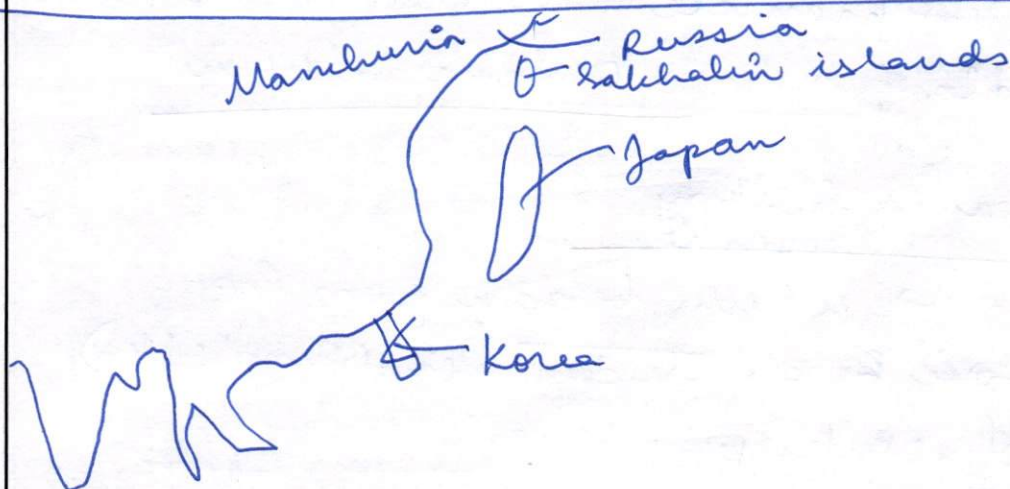 Manchuria
Russia
Sakhalin islands
Japan
Korea